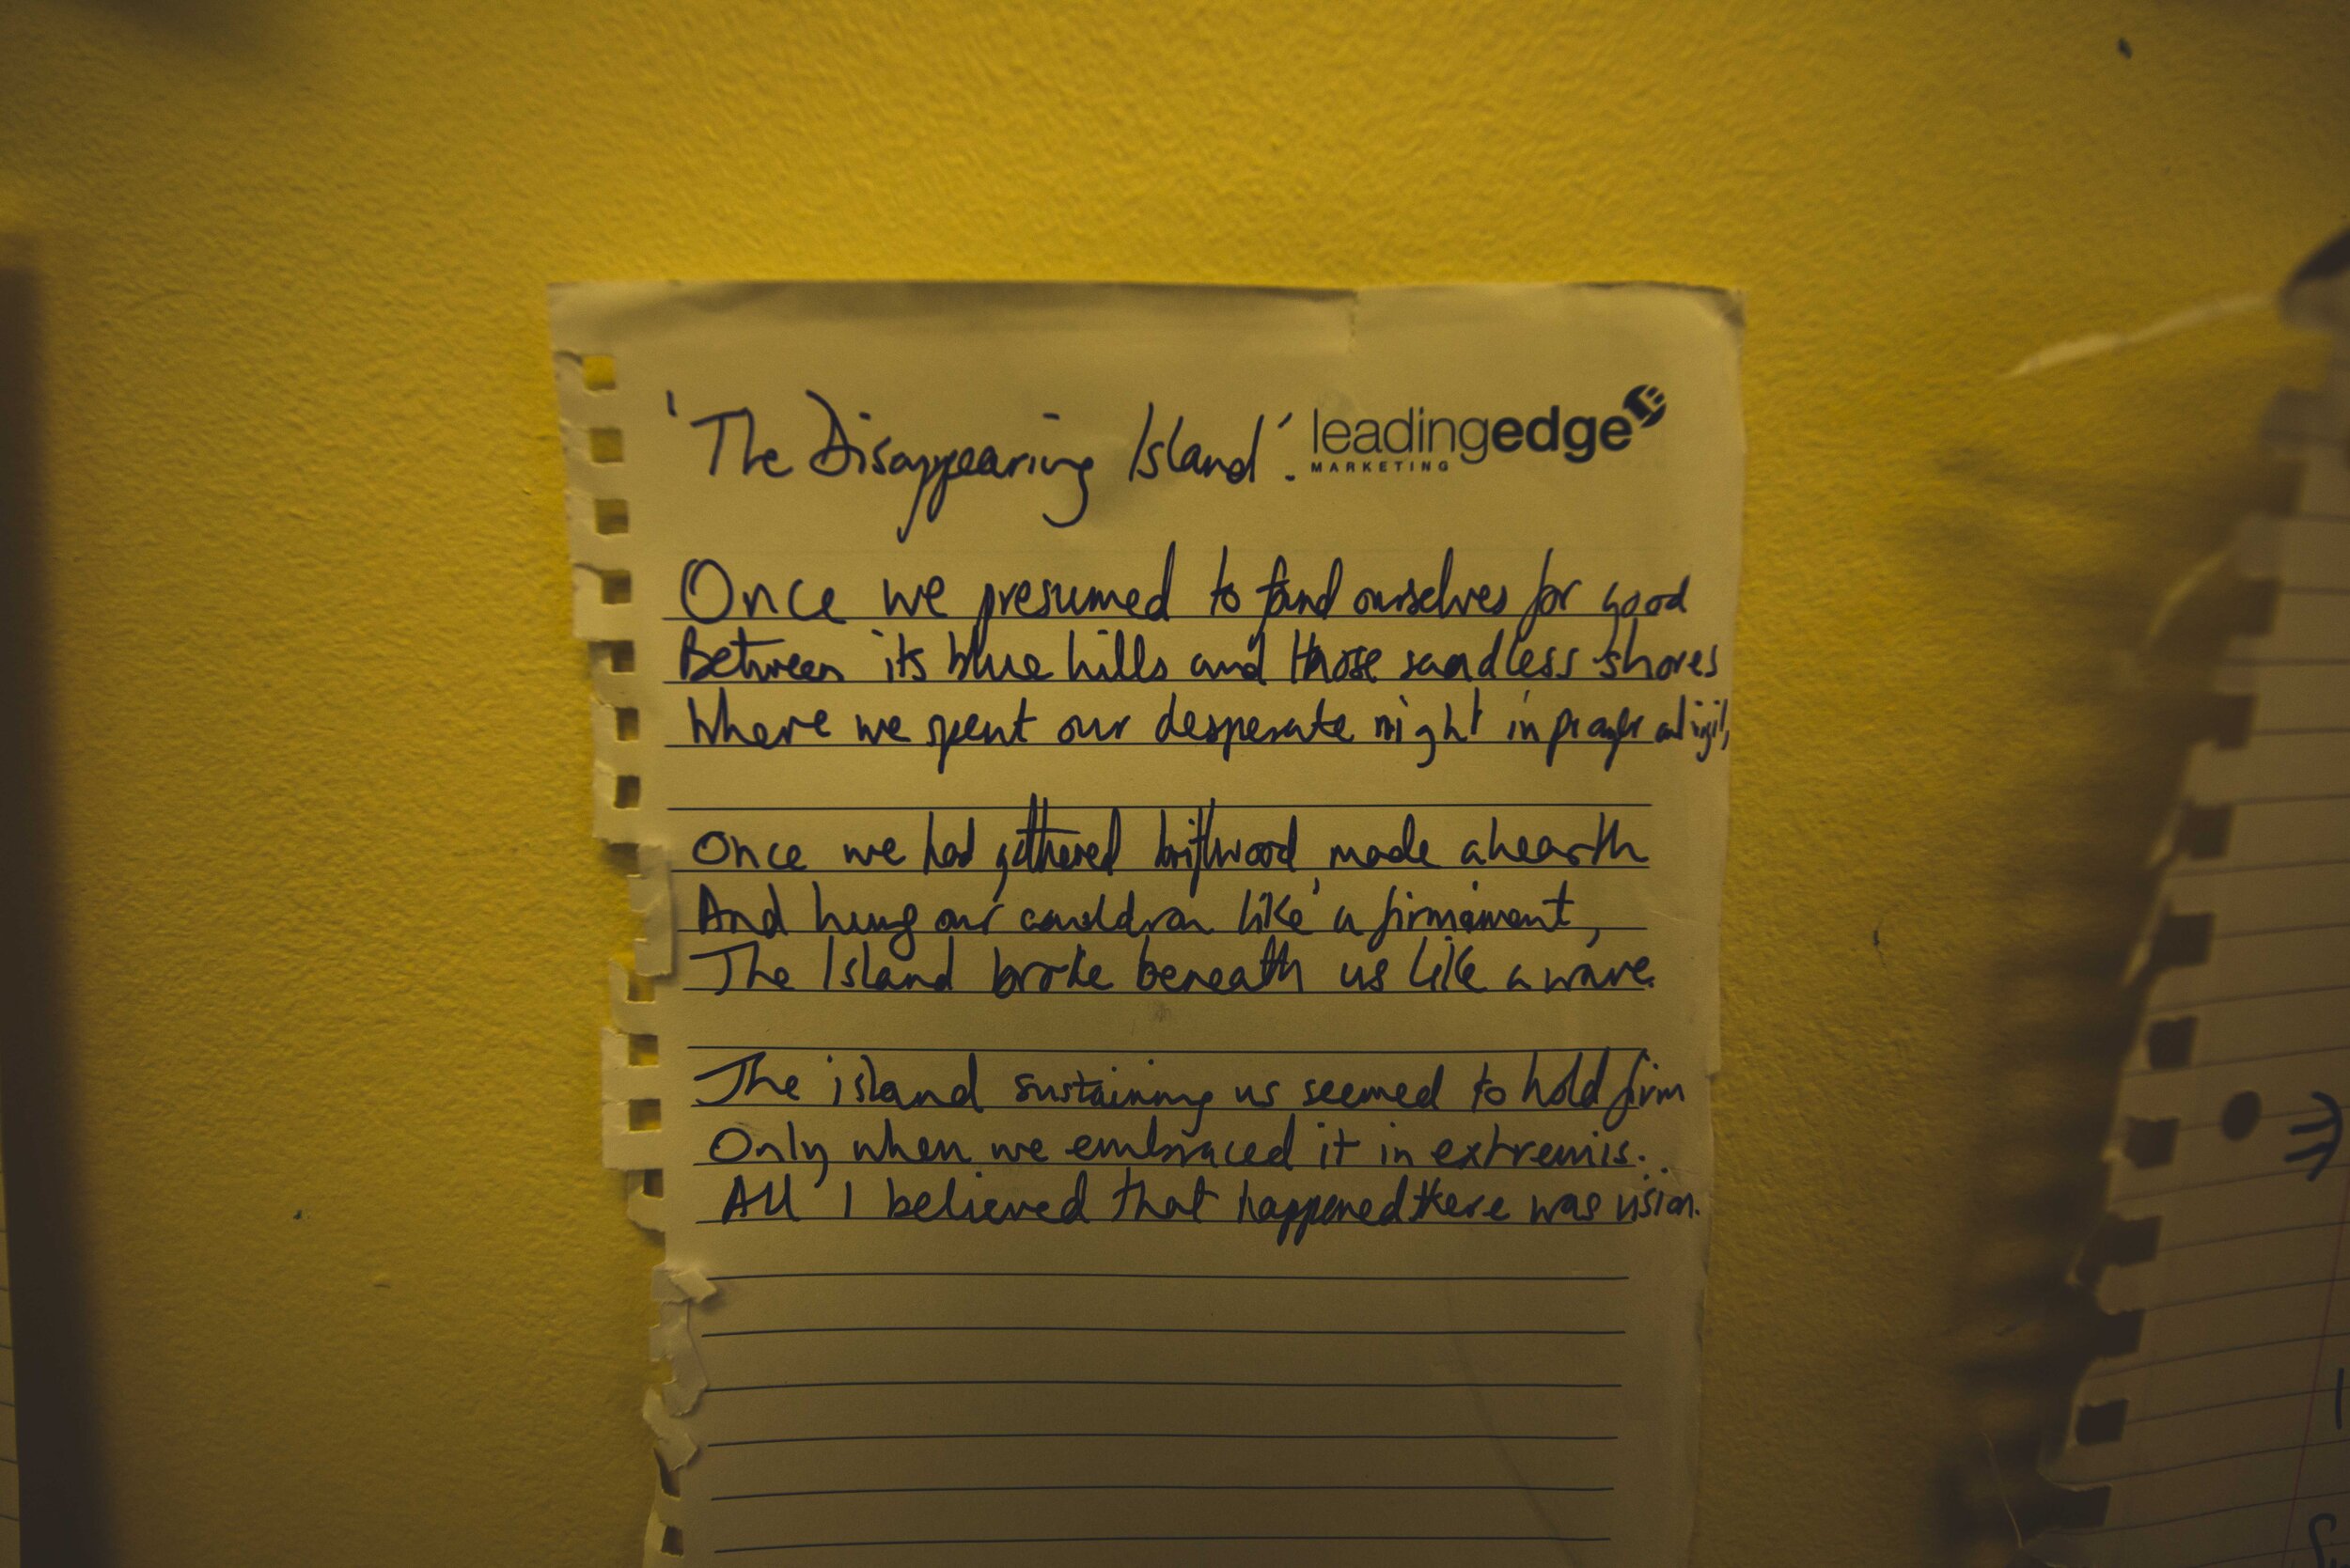 'The Disappearing Island'.
leadingedge
MARKETING
Once we presumed to found ourselves for good
Between its blue hills and those sandless shores
Where we spent our desperate night in prayer and vigil,
Once we had gathered driftwood, made a hearth
And hung our cauldron like a firmament,
The Island broke beneath us like a wave.
The island sustaining us seemed to hold firm
Only when we embraced it in extremis.
All I believed that happened there was vision.